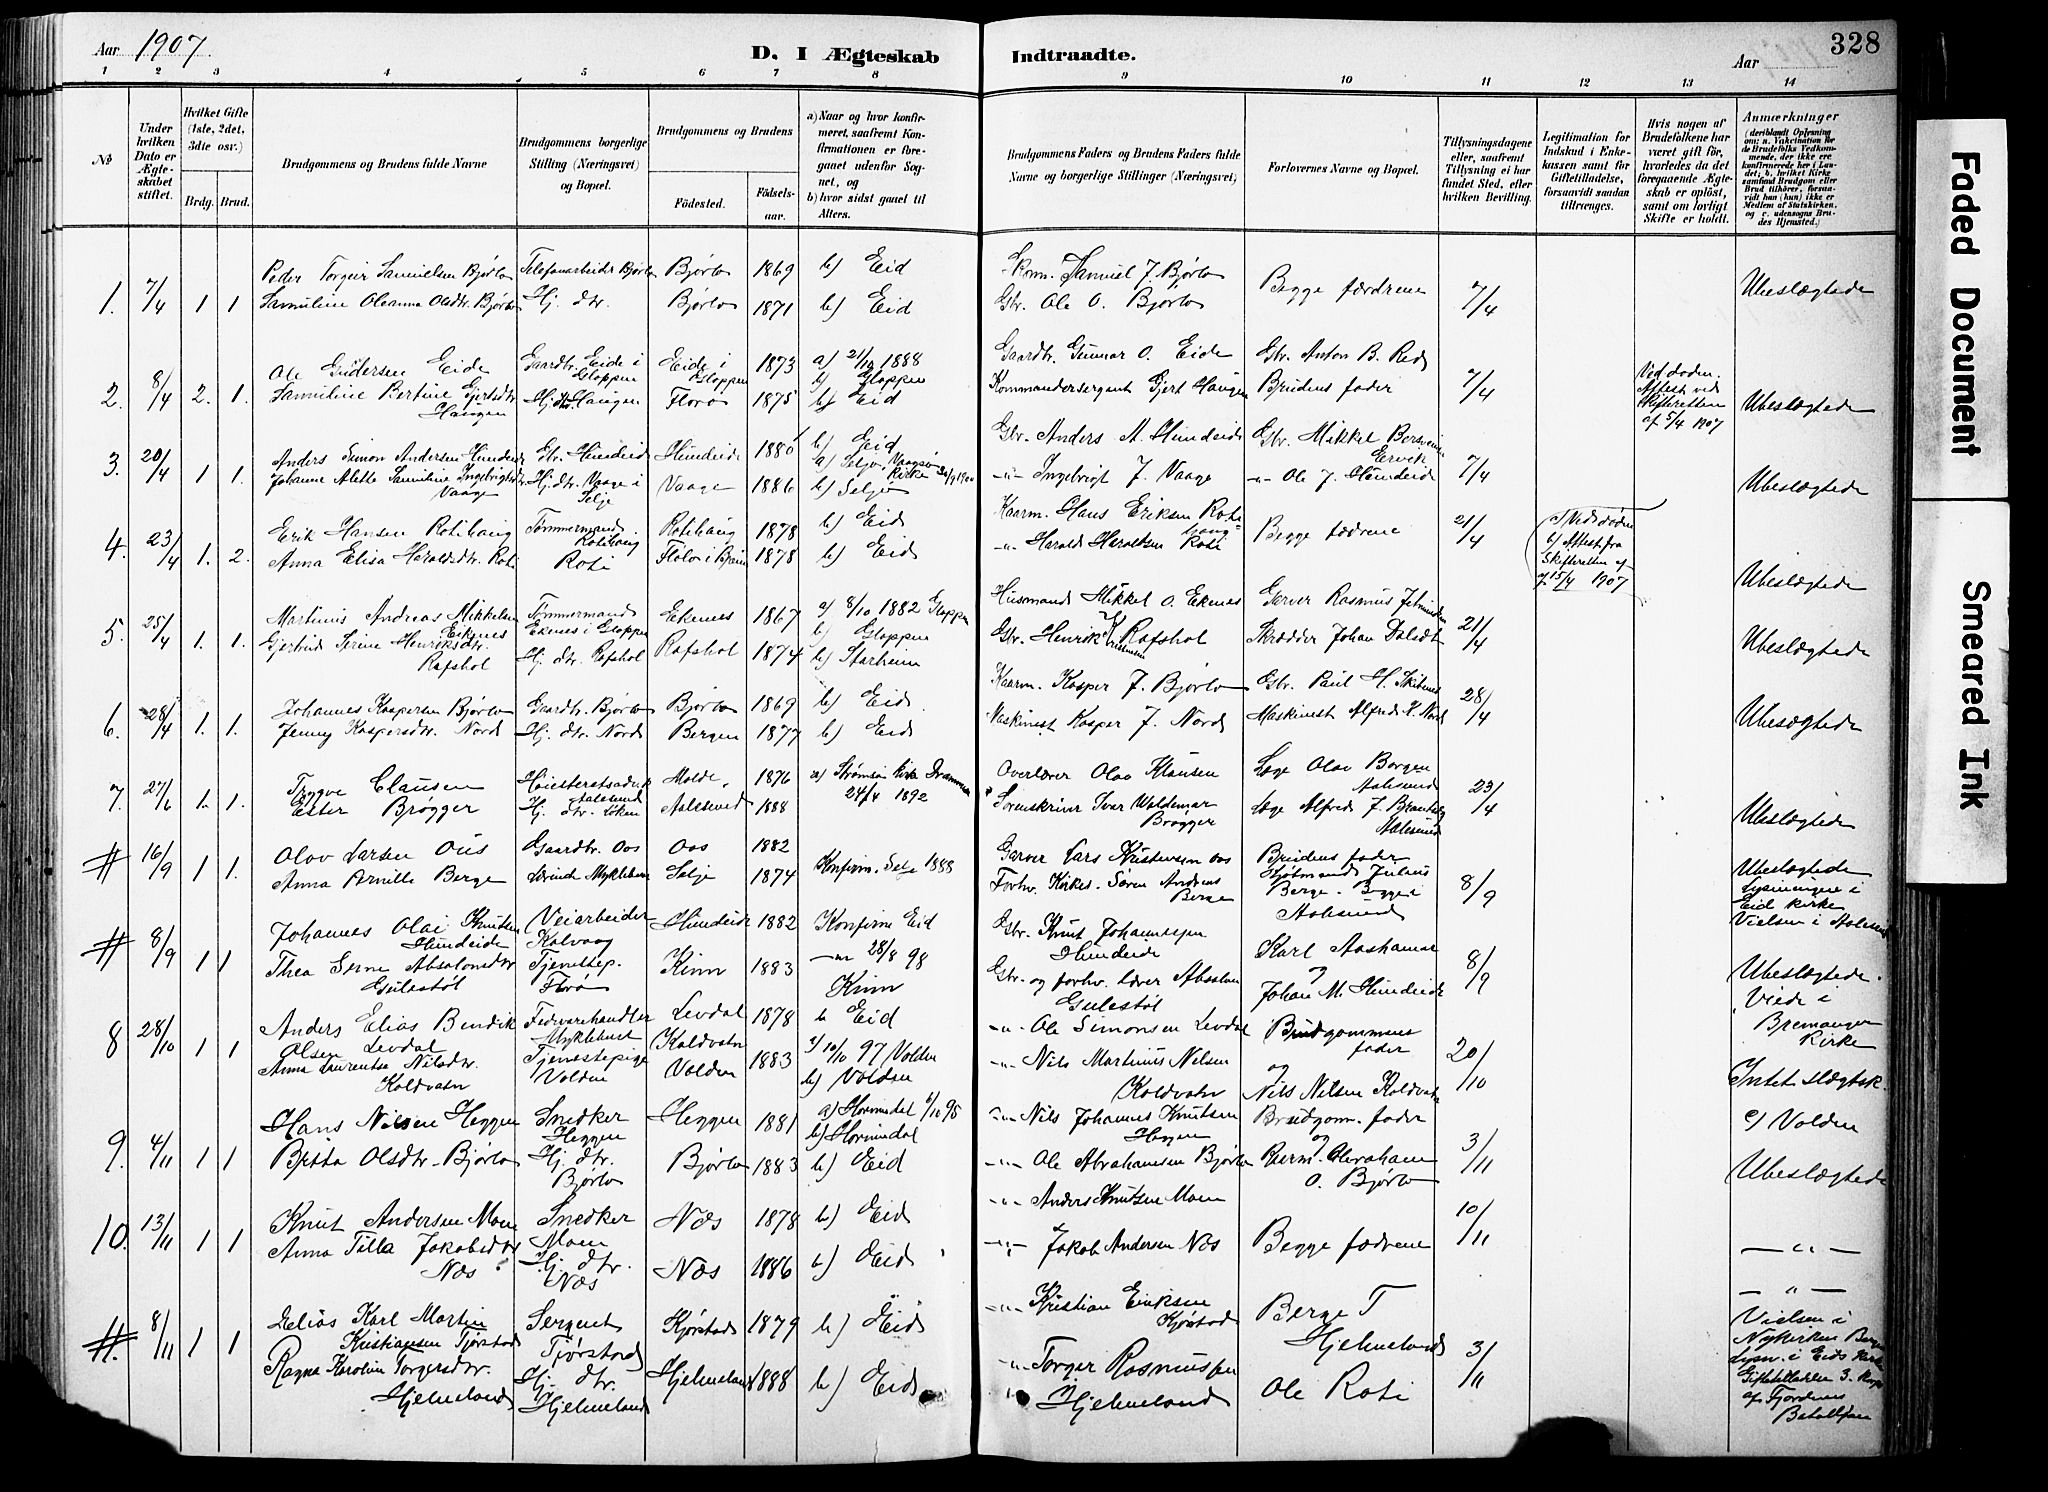 Aar 1907.
D. I Ægteskab Indtraadte.
Aar
328
1 2 3 4 5 6 7 8 9 10 11 12 13 14
No
Under hvilken Dato er Ægteskabet stiftet.
Hvilket Gifte (1ste, 2det, 3die osv.)
Brdg. Brud.
Brudgommens og Brudens fulde Navne
Brudgommens borgerlige Stilling (Næringsvei) og Bopæl.
Brudgommens og Brudens
Fødested.
Fødselsaar.
a) Naar og hvor konfirmeret, saafremt Konfirmationen er foregaaet udenfor Sognet, og
b) hvor sidst gaaet til Alters.
Brudgommens Faders og Brudens Faders fulde Navne og borgerlige Stillinger (Næringsvei)
Forlovernes Navne og Bopæl.
Tillysningsdagene eller, saafremt Tillysning ei har fundet Sted, efter hvilken Bevilling.
Legitimation for Indskud i Enkekassen samt for Giftetilladelse, forsaavidt saadan tiltrænges.
Hvis nogen af Brudefolkene har været gift før, hvorledes da det foregaaende Ægteskab er opløst, samt om lovligt Skifte er holdt.
Anmærkninger
(deriblandt Oplysning om: a. Vakcination for de Brudefolks Vedkommende, der ikke ere konfirmerede her i Landet; b. hvilket Kirkesamfund Brudgom eller Brud tilhører, forsaavidt han (hun) ikke er Medlem af Statskirken, og c. udensogns Brudes Hjemsted.)
1. 7/4 1 1 Peder Torgeir Samuelsen Bjørlo Telefonarbeider Bjørlo Bjørlo 1869 b) Eid Skom. Samuel J. Bjørlo Begge fædrene 7/4 Ubeslægtede
Samuline Oleanna Olsdtr. Bjørlo Hj. dtr. Bjørlo 1871 b) Eid Gbr. Ole O. Bjørlo
2. 8/4 2. 1. Ole Gudersen Eide Gaardbr. Eide i Gloppen Eide i Gloppen 1873 a) 21/10 1888 b) Gloppen Gaardbr. Gunnar O. Eide Gbr. Anton B. Red 7/4 Ved døden. Attest ved Skifteretten af 5/4 1907 Ubeslægtede
Samuline Bertine Gjertsdtr. Haugen Hj. dtr. Haugen Florø 1875 b) Eid Kommandersergent Gjert Haugen Brudens fader
3. 20/4 1 1 Anders Simon Andersen Hundeide Gbr. Hundeid Hundeide 1880 b) Eid Gbr. Anders A. Hundeide Gbr. Mikkel Ervik 7/4 Ubeslægtede
Johanne Alette Samuline Ingebrigtsdtr. Vaage Hj. dtr. Vaage i Selje Vaage 1886 a) Selje, Vaagsø Kirke b) Selje -"- Ingebrigt J. Vaage -"- Ole J. Hundeide
4. 23/4 1. 2. Erik Hansen Rotihaug Tømmermand Rotihaug Rotihaug 1878 b) Eid Kaarm. Hans Eriksen Rotihaug Begge fædrene 21/4 Ved døden b) Attest fra Skifteretten af 15/4 1907 Ubeslægtede
Anna Elisa Haraldsdtr. Roti Roti 1878 b) Eid -"- Harald Haraldsen Roti
5. 25/4 1. 1. Martinus Andreas Mikkelsen Eikenes Tømmermand Ekenes i Gloppen Ekenes 1867 a) 8/10 1882 Gloppen b) Gloppen Husmand Mikkel O. Ekenes Garver Rasmus 21/4 Ubeslægtede
Gjertrud Serine Henriksdtr. Rafshol Hj. dtr. Rafshol Rafshol 1874 b) Starheim Gbr. Henrik Rafshol Skrædder Johan Dalsdt
6. 28/4 1. 1. Johannes Kaspersen Bjørlo Gaardbr. Bjørlo Bjørlo 1869 b) Eid Kaarm. Kasper J. Bjørlo Gbr. Paul H. Skibenes 28/4 Ubesøgtede
Jenny Kaspersdtr. Nord Hj. dtr. Nord Bergen 1877 b) Eid Maskinist Kasper J. Nord Maskinist Alfred K. Nord
7. 27/6 1. 1. Trygve Clausen Høiesteretsadvok. Aalesund Molde 1876 a) Strømsø Kirke Drammen 24/4 1892 Overlærer Olav Klausen Læge Olav Borgen Aalesund 23/4 Ubeslægtede
Ester Brøgger Hj. dtr. Løken Aalesund 1888 Sorenskriver Ivar Waldemar Brøgger Læge Alfred J. Aalesund
# 16/9 1 1. Olav Larsen Ous Gaardbr. Oos Oos 1882 Garver Lars Kristensen Oos Brudens fader 8/9 Ubeslægtede Lysningen i Eid kirke Vielsen i Aalesund
Anna Pernille Berge Lærerinde Myklebust Selje 1874 Konfirm. Selje 1888 Forhv. Kirkes. Søren Andreas Berge Styrmand Julius Berge. Begge i Aalesund
# 8/9 1 1 Johannes Olai Knutsen Hundeide Veiarbeider Kalvaag Hundeide 1882 Konfirm Eid Gbr. Knut Johannessen Hundeide Karl Aashamar og 8/9 Ubeslægtede. Viede i Bremanger Kirke
Thea Serne Absalonsdtr. Gulestøl Tjenestep. Florø Kinn 1883 28/8 98 Kinn Gbr. og forhv. Lærer Absalon Gulestøl Johan M. Hundeide
8 28/10 1 1 Anders Elias Bendik Olsen Levdal Fedvarehandler Myklebust Levdal 1878 b Eid -"- Ole Simonsen Levdal Brudgommens fader og 20/10 Intet slægtsk
Anna Laurentse Nilsdtr. Koldvatn Tjenestepige Volden Koldvatn Volden 1883 a) 10/10 97 Volden b) Volden -"- Nils Martinus Nilsen Koldvatn Nils Nilsen Koldvatn c) Volden
9. 4/11 1 1 Hans Nilsen Heggen Snedker Heggen Heggen 1881 a) Hornindal 6/10 95 b) Hornindal -"- Nils Johannes Knutsen Heggen Brudgom. fader og 3/11 Ubeslægtede
Britha Olsdtr. Bjørlo Hj. dtr. Bjørlo Bjørlo 1883 b) Eid -"- Ole Abrahamsen Bjørlo Abraham O. Bjørlo
10. 13/11 1 1 Knut Andersen Moen Snedker Moen Næs 1878 b) Eid -"- Anders Knutsen Moen Begge fædrene 10/11 -"-
Anna Tilla Jakobsdtr. Næs Hj. dtr. Næs Næs 1886 b) Eid -"- Jakob Andersen Næs
#. 8/11 1 1 Karl Martin Kristiansen Tjørstad Sergent Tjørstad Kjørstad 1879 b) Eid -"- Kristian Eriksen Kjørstad Berge T Hjelmeland 3/11 -"- Vielsen i Nykirken Bergen Lysn. i Eids Kirke Giftetilladelse 3. Komp. af Fjordenes Bataljon
Ragna Karoline Torgersdtr. Hjelmeland Hj. dtr. Hjelmeland Hjelmeland 1888 b) Eid -"- Torger Rasmussen Hjelmeland Ole Roti
Faded Document
Smeared Ink